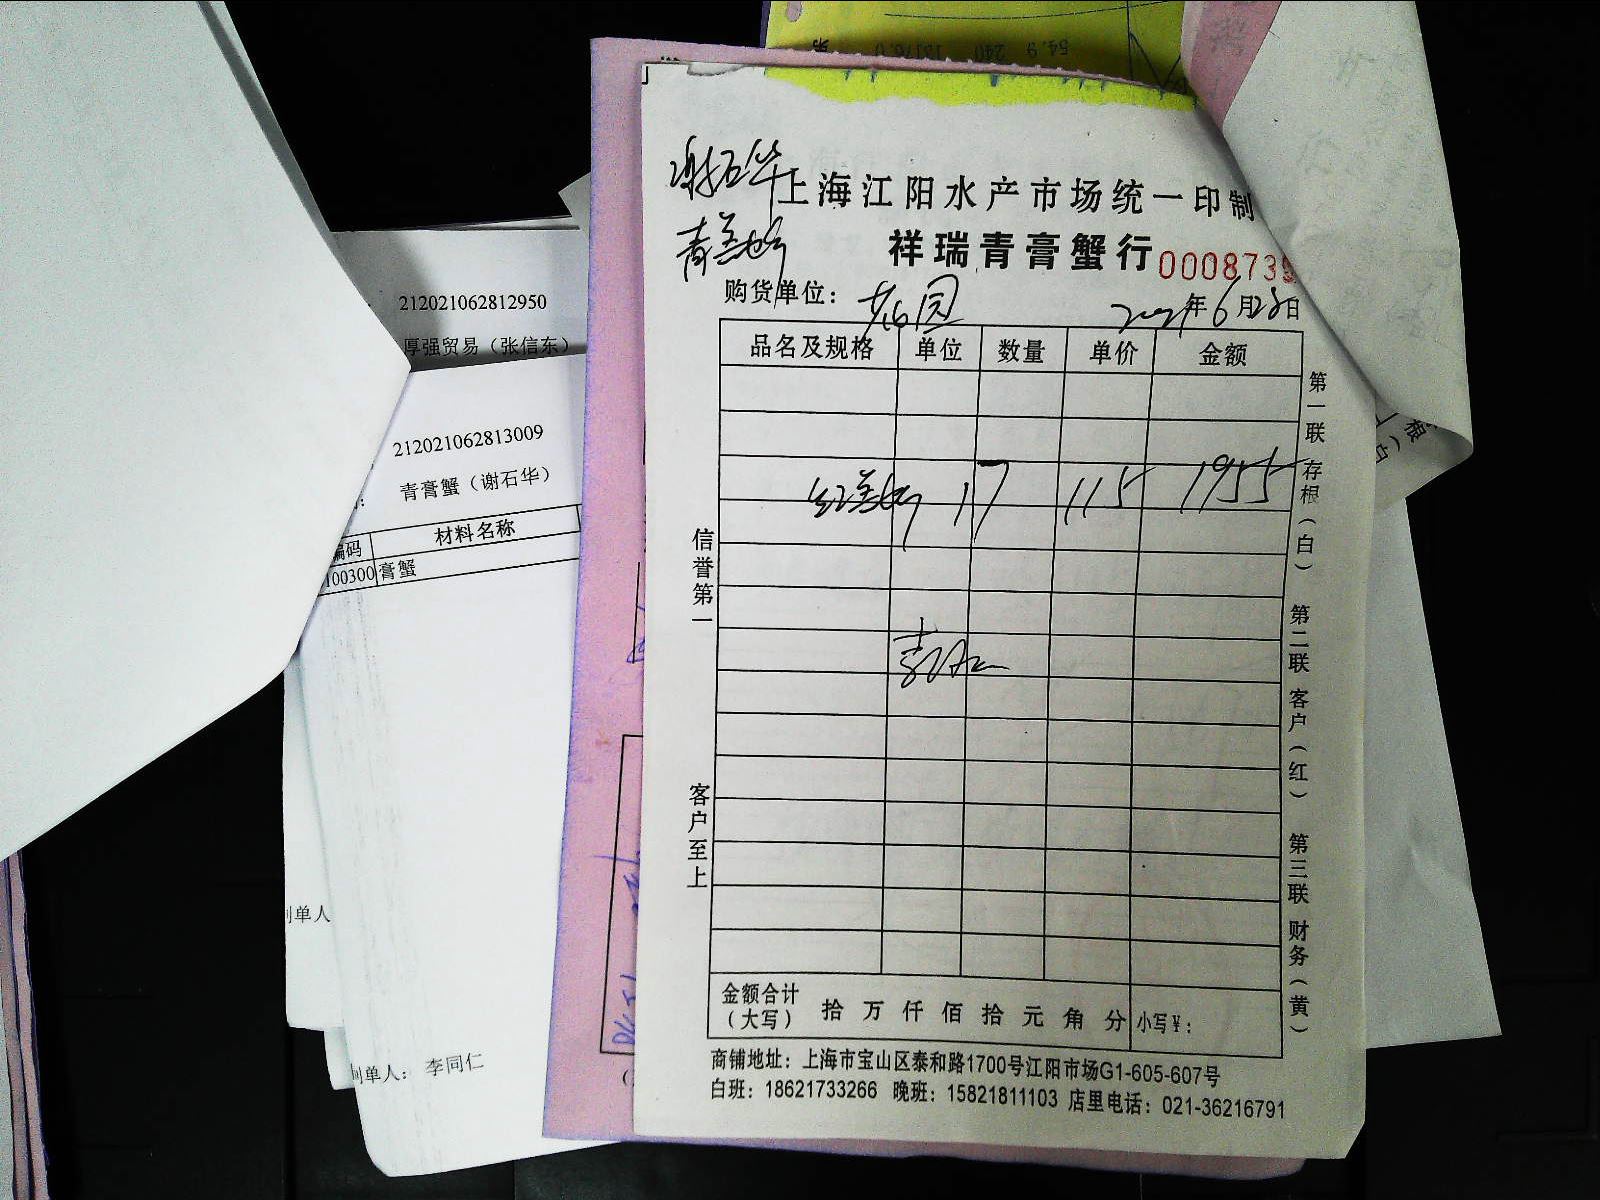 谢石华
青膏蟹
上海江阳水产市场统一印制
祥瑞青膏蟹行
000873
购货单位：
2021年6月28日
品名及规格 单位 数量 单价 金额
红膏蟹 17 115 1955
信誉第一
客户至上
第一联 存根（白） 第二联 客户（红） 第三联 财务（黄）
金额合计（大写） 拾 万 仟 佰 拾 元 角 分 小写￥：
商铺地址：上海市宝山区泰和路1700号江阳市场G1-605-607号
白班：18621733266 晚班：15821811103 店里电话：021-36216791
212021062812950
厚强贸易（张信东）
212021062813009
青膏蟹（谢石华）
编码 材料名称
100300 膏蟹
制单人
制单人： 李同仁
54.9 240 13176.0